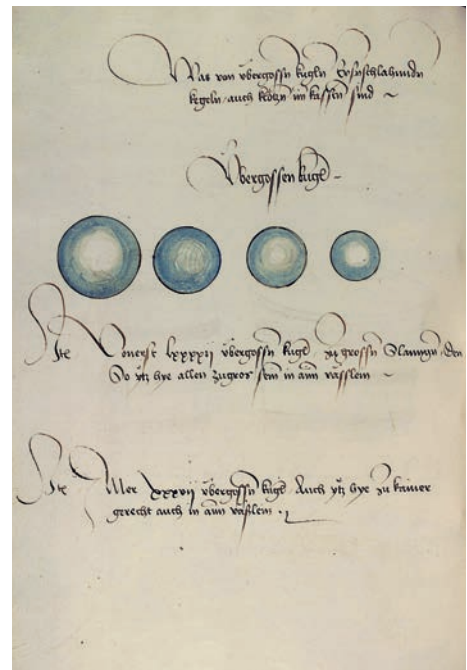 Was von übergossn kugln Eysnschlahundn
kegeln auch klotzn im kassten sind ~
Übergossen kugl –
Ite Vonerst lxxxxii übergossn kugl zu grossn Slanngn den
So ytz hye allen zugros sein in aim vässlein ~
Ite Aller xxxvii übergossn kugl Auch ytz hye zu kainer
gerecht auch in aim väslein .